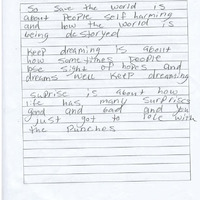 So save the world is
about People self harming
and how the world is
being destoryed
Keep dreaming is about
how some times people
lose sight of hopes and
dreams well keep dreaming
suprise is about how
life has many surprises
good and bad and you
just got to role with
the punches